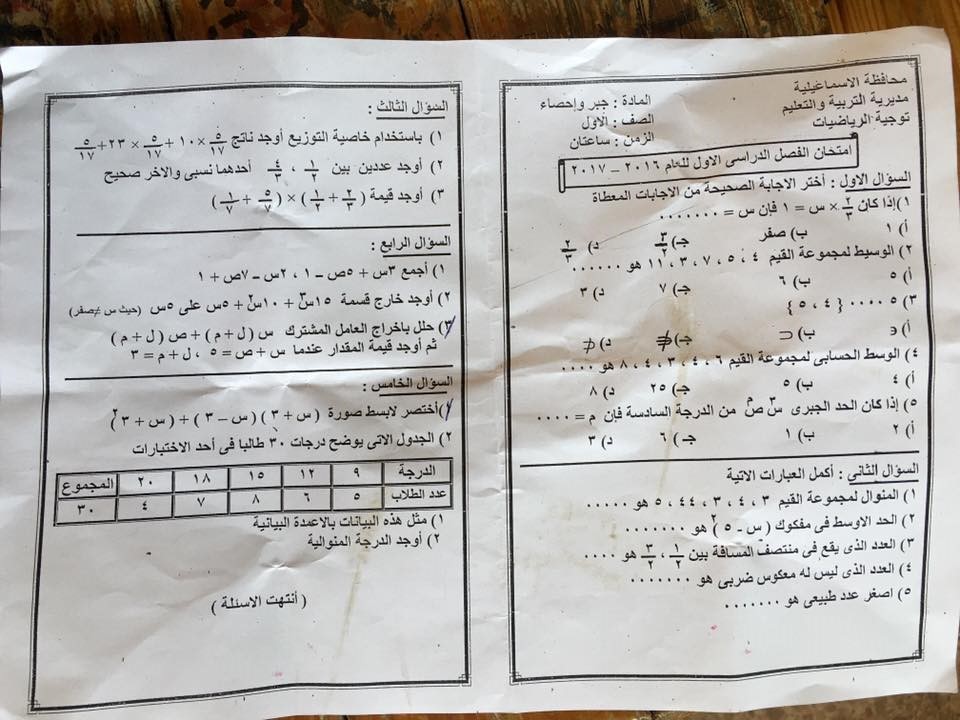 محافظة الاسماعيلية
مديرية التربية والتعليم
توجية الرياضيات
المادة : جبر وإحصاء
الصف : الاول
الزمن : ساعتان
امتحان الفصل الدراسى الاول للعام ٢٠١٦ – ٢٠١٧
السؤال الاول : أختر الاجابة الصحيحة من الاجابات المعطاة
١) إذا كان ٢/٣ × س = ١ فإن س = ٠٠٠٠٠٠٠
أ) ١ ب) صفر جـ) ٣/٢ د) ٢/٣
٢) الوسيط لمجموعة القيم ٤ ، ٥ ، ٧ ، ٣ ، ١١ هو ٠٠٠٠٠٠
أ) ٥ ب) ٦ جـ) ٧ د) ٣
٣) ٥ ٠٠٠٠ { ٤ ، ٥ }
أ) ∈ ب) ⊂ جـ) ∉ د) ⊄
٤) الوسط الحسابى لمجموعة القيم ٦ ، ٤ ، ٣ ، ٤ ، ٨ هو ٠٠٠٠
أ) ٤ ب) ٥ جـ) ٢٥ د) ٨
٥) إذا كان الحد الجبرى س٣ ص م من الدرجة السادسة فإن م = ٠٠٠٠
أ) ٢ ب) ١ جـ) ٦ د) ٣
السؤال الثانى : أكمل العبارات الاتية
١) المنوال لمجموعة القيم ٣ ، ٤ ، ٣ ، ٤٤ ، ٥ هو ٠٠٠٠٠
٢) الحد الاوسط فى مفكوك ( س - ٥ )٢ هو ٠٠٠٠٠٠٠
٣) العدد الذى يقع فى منتصف المسافة بين ١/٢ ، ٣/٢ هو ٠٠٠٠
٤) العدد الذى ليس له معكوس ضربى هو ٠٠٠٠٠٠٠
٥) اصغر عدد طبيعى هو ٠٠٠٠٠٠٠
السؤال الثالث :
١) باستخدام خاصية التوزيع أوجد ناتج ٥/١٧ × ١٠ + ٥/١٧ × ٢٣ + ٥/١٧
٢) أوجد عددين بين ١/٢ ، ٤/٢ أحدهما نسبى والاخر صحيح
٣) أوجد قيمة ( ٢/٣ + ١/٢ ) × ( ٥/٧ + ١/٧ )
السؤال الرابع :
١) أجمع ٣س + ٥ص – ١ ، ٢س – ٧ص + ١
٢) أوجد خارج قسمة ١٥س٣ + ١٠س٢ + ٥س على ٥س (حيث س ≠ صفر)
٣) حلل باخراج العامل المشترك س ( ل + م ) + ص ( ل + م )
ثم أوجد قيمة المقدار عندما س + ص = ٥ ، ل + م = ٣
السؤال الخامس :
١) أختصر لابسط صورة ( س + ٣ ) ( س – ٣ ) + ( س + ٣ )٢
٢) الجدول الاتى يوضح درجات ٣٠ طالبا فى أحد الاختبارات
الدرجة ٩ ١٢ ١٥ ١٨ ٢٠ المجموع
عدد الطلاب ٥ ٦ ٨ ٧ ٤ ٣٠
١) مثل هذه البيانات بالاعمدة البيانية
٢) أوجد الدرجة المنوالية
( أنتهت الاسئلة )